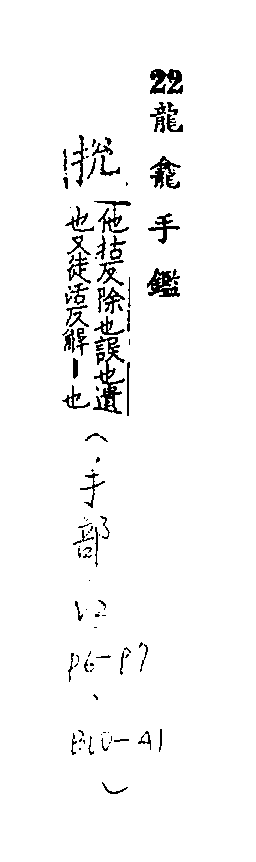 22龍龕手鑑
挩
他括反除也誤也遺
也又徒活反解｜也
（手部
P6-P7、
B10-A1）